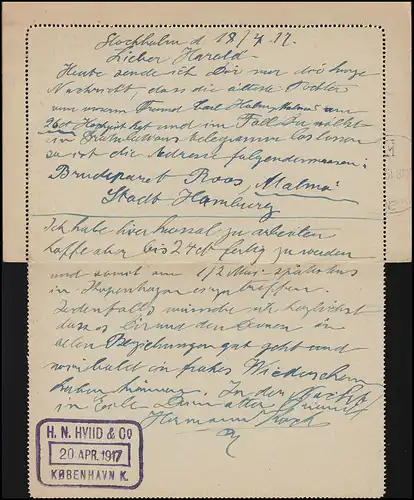 Stockholm d 18/4 17.
Lieber Harald
Heute sende ich Dir nur die kurze
Nachricht, dass die älteste Tochter
von unserm Freund Carl Holm, Malmö am
26ct Hochzeit hat und im Fall Du willst
ein Gratulations telegramm loslassen
so ist die Adresse folgendermassen:
Brudeparet Roos, Malmö
Stadt Hamburg
Ich habe hier zu arbeiten
hoffe aber bis 24ct fertig zu werden
und somit am 1/2 Mai spätestens
in Kopenhagen einzutreffen.
Jedenfalls wünsche ich herzlichst
dass es Dir und den Deinen in
allen Beziehungen gut geht und
wir bald ein frohes Wiedersehen
haben können. In der
in Eile Dein alter Freund
Hermann
H. N. HVIID & Co
20 APR. 1917
KØBENHAVN K.